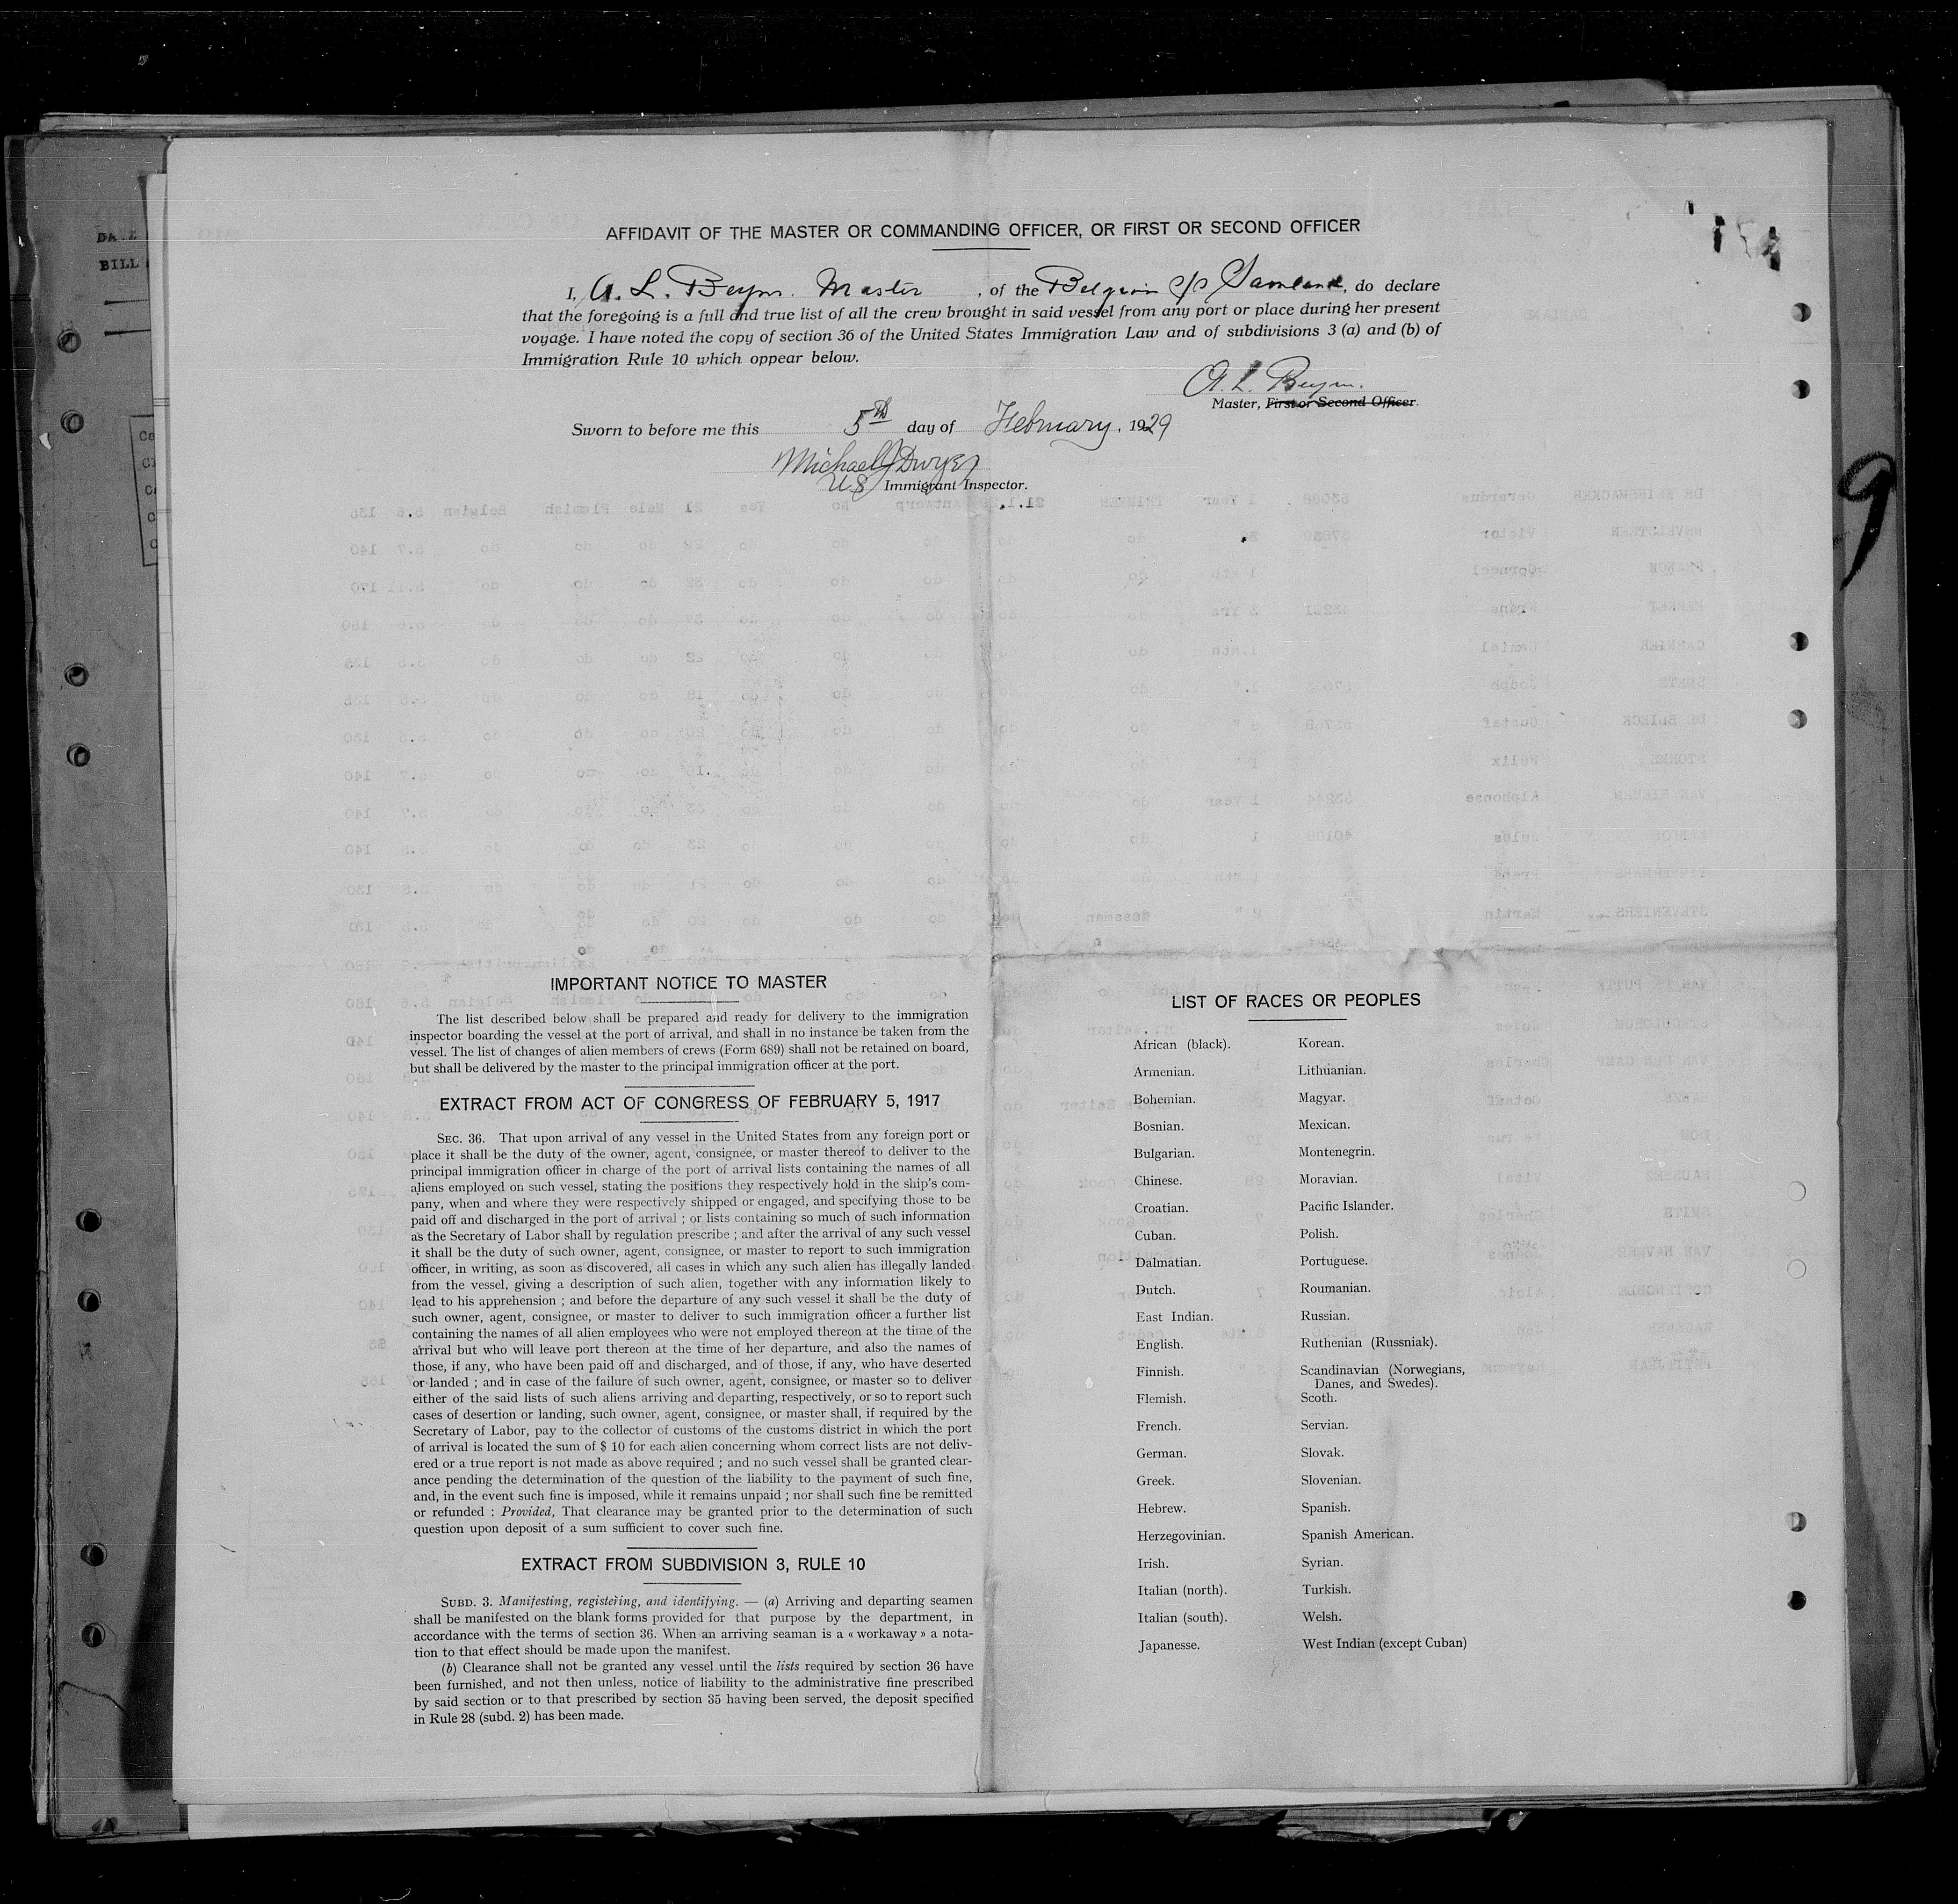 AFFIDAVIT OF THE MASTER OR COMMANDING OFFICER, OR FIRST OR SECOND OFFICER
I, A. L. Beyn. Master, of the Belgian s/s Samland, do declare
that the foregoing is a full and true list of all the crew brought in said vessel from any port or place during her present
voyage. I have noted the copy of section 36 of the United States Immigration Law and of subdivisions 3 (a) and (b) of
Immigration Rule 10 which oppear below.
A. L. Beyn.
Master, First or Second Officer.
Sworn to before me this 5th day of February, 1929
Michael J Dwyer
US Immigrant Inspector.
9
DATE
BILL
IMPORTANT NOTICE TO MASTER
The list described below shall be prepared and ready for delivery to the immigration
inspector boarding the vessel at the port of arrival, and shall in no instance be taken from the
vessel. The list of changes of alien members of crews (Form 689) shall not be retained on board,
but shall be delivered by the master to the principal immigration officer at the port.
EXTRACT FROM ACT OF CONGRESS OF FEBRUARY 5, 1917
SEC. 36. That upon arrival of any vessel in the United States from any foreign port or
place it shall be the duty of the owner, agent, consignee, or master thereof to deliver to the
principal immigration officer in charge of the port of arrival lists containing the names of all
aliens employed on such vessel, stating the positions they respectively hold in the ship's com-
pany, when and where they were respectively shipped or engaged, and specifying those to be
paid off and discharged in the port of arrival ; or lists containing so much of such information
as the Secretary of Labor shall by regulation prescribe ; and after the arrival of any such vessel
it shall be the duty of such owner, agent, consignee, or master to report to such immigration
officer, in writing, as soon as discovered, all cases in which any such alien has illegally landed
from the vessel, giving a description of such alien, together with any information likely to
lead to his apprehension ; and before the departure of any such vessel it shall be the duty of
such owner, agent, consignee, or master to deliver to such immigration officer a further list
containing the names of all alien employees who were not employed thereon at the time of the
arrival but who will leave port thereon at the time of her departure, and also the names of
those, if any, who have been paid off and discharged, and of those, if any, who have deserted
or landed ; and in case of the failure of such owner, agent, consignee, or master so to deliver
either of the said lists of such aliens arriving and departing, respectively, or so to report such
cases of desertion or landing, such owner, agent, consignee, or master shall, if required by the
Secretary of Labor, pay to the collector of customs of the customs district in which the port
of arrival is located the sum of $ 10 for each alien concerning whom correct lists are not deliv-
ered or a true report is not made as above required ; and no such vessel shall be granted clear-
ance pending the determination of the question of the liability to the payment of such fine,
and, in the event such fine is imposed, while it remains unpaid ; nor shall such fine be remitted
or refunded : Provided, That clearance may be granted prior to the determination of such
question upon deposit of a sum sufficient to cover such fine.
EXTRACT FROM SUBDIVISION 3, RULE 10
SUBD. 3. Manifesting, registering, and identifying. — (a) Arriving and departing seamen
shall be manifested on the blank forms provided for that purpose by the department, in
accordance with the terms of section 36. When an arriving seaman is a « workaway » a nota-
tion to that effect should be made upon the manifest.
(b) Clearance shall not be granted any vessel until the lists required by section 36 have
been furnished, and not then unless, notice of liability to the administrative fine prescribed
by said section or to that prescribed by section 35 having been served, the deposit specified
in Rule 28 (subd. 2) has been made.
LIST OF RACES OR PEOPLES
African (black). Korean.
Armenian. Lithuanian.
Bohemian. Magyar.
Bosnian. Mexican.
Bulgarian. Montenegrin.
Chinese. Moravian.
Croatian. Pacific Islander.
Cuban. Polish.
Dalmatian. Portuguese.
Dutch. Roumanian.
East Indian. Russian.
English. Ruthenian (Russniak).
Finnish. Scandinavian (Norwegians,
Danes, and Swedes).
Flemish. Scoth.
French. Servian.
German. Slovak.
Greek. Slovenian.
Hebrew. Spanish.
Herzegovinian. Spanish American.
Irish. Syrian.
Italian (north). Turkish.
Italian (south). Welsh.
Japanesse. West Indian (except Cuban)